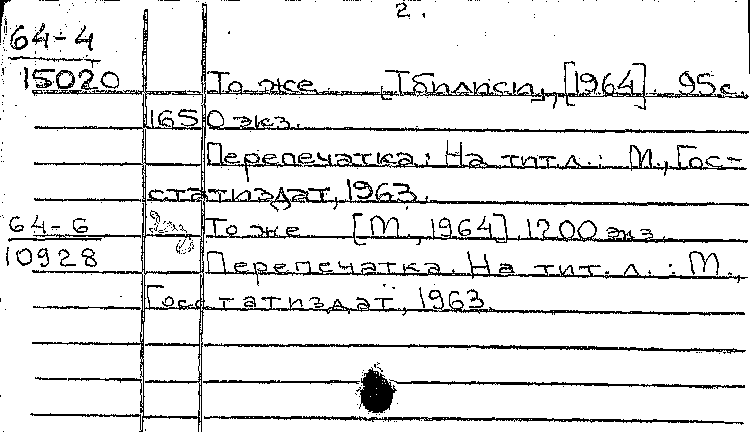 2.
64-4
15020 То же [Тбилиси], [1964]. 95 с.
1650 экз.
Перепечатка: На тит. л.: М., Гос-
статиздат, 1963.
64-6 То же [М., 1964]. 1200 экз.
10928 Перепечатка. На тит. л.: М.,
Госстатиздат, 1963.